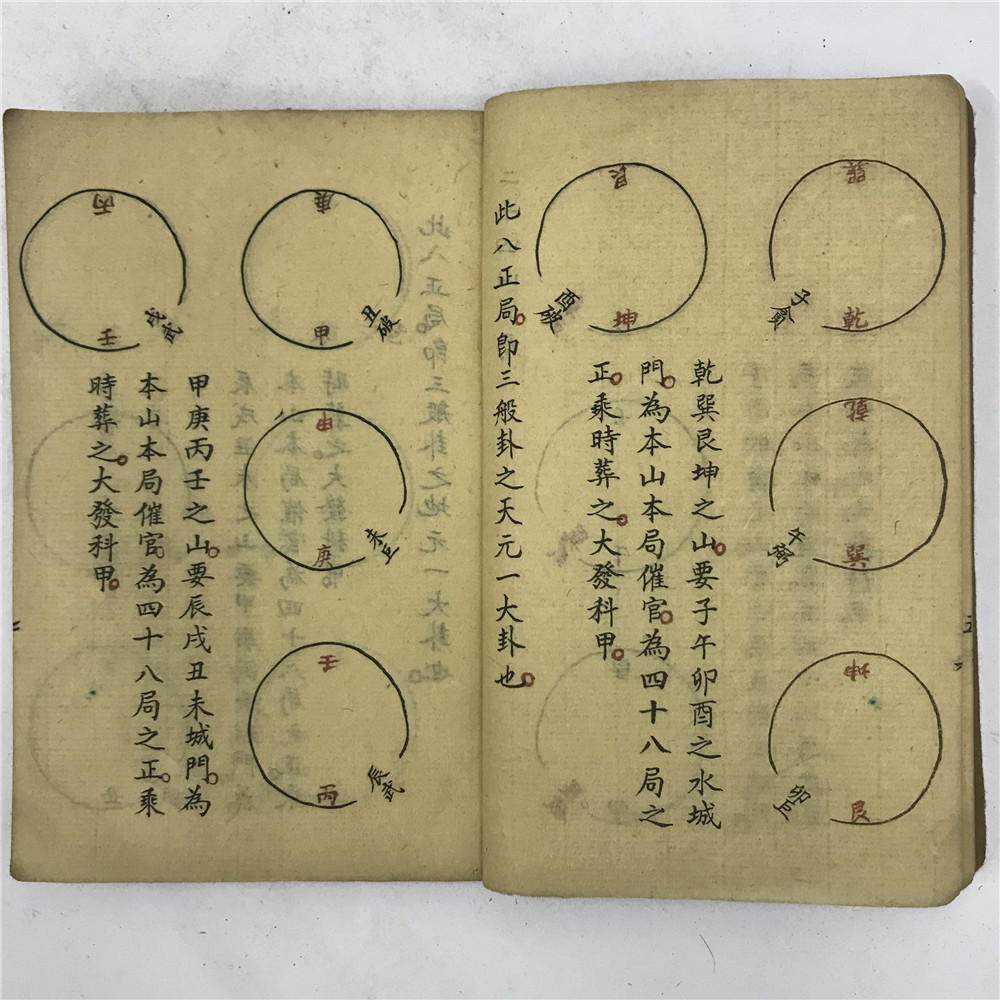 巽
子貪
乾
乾
巽
坤
卯巨
艮
乾巽艮坤之山要子午卯酉之水城
門為本山本局催官為四十八局之
正乘時葬之大發科甲
艮
酉破
坤
此八正局即三般卦之天元一大卦也
庚
丑破
甲
甲
未巨
庚
壬
辰武
丙
甲庚丙壬之山要辰戌丑未城門為
本山本局催官為四十八局之正乘
時葬之大發科甲
丙
戌武
壬